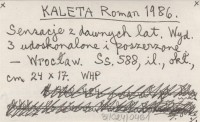 KALETA Roman 1986.
Sensacje z dawnych lat. Wyd.
3 udoskonalone i poszerzone
– Wrocław. Ss. 588, il., okł.,
cm 24 x 17. WHP